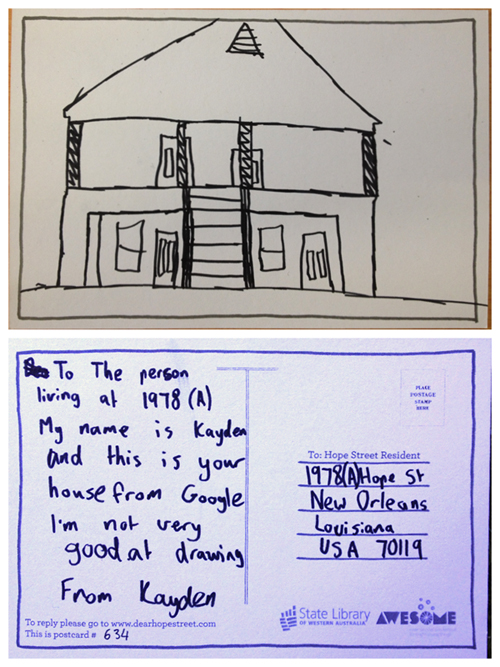 To The person
living at 1978 (A)
My name is Kayden
and this is your
house from Google
I'm not very
good at drawing
From Kayden
To reply please go to www.dearhopestreet.com
This is postcard # 634
PLACE
POSTAGE
STAMP
HERE
To: Hope Street Resident
1978(A) Hope St
New Orleans
Louisiana
USA 70119
State Library
OF WESTERN AUSTRALIA
AWESOME